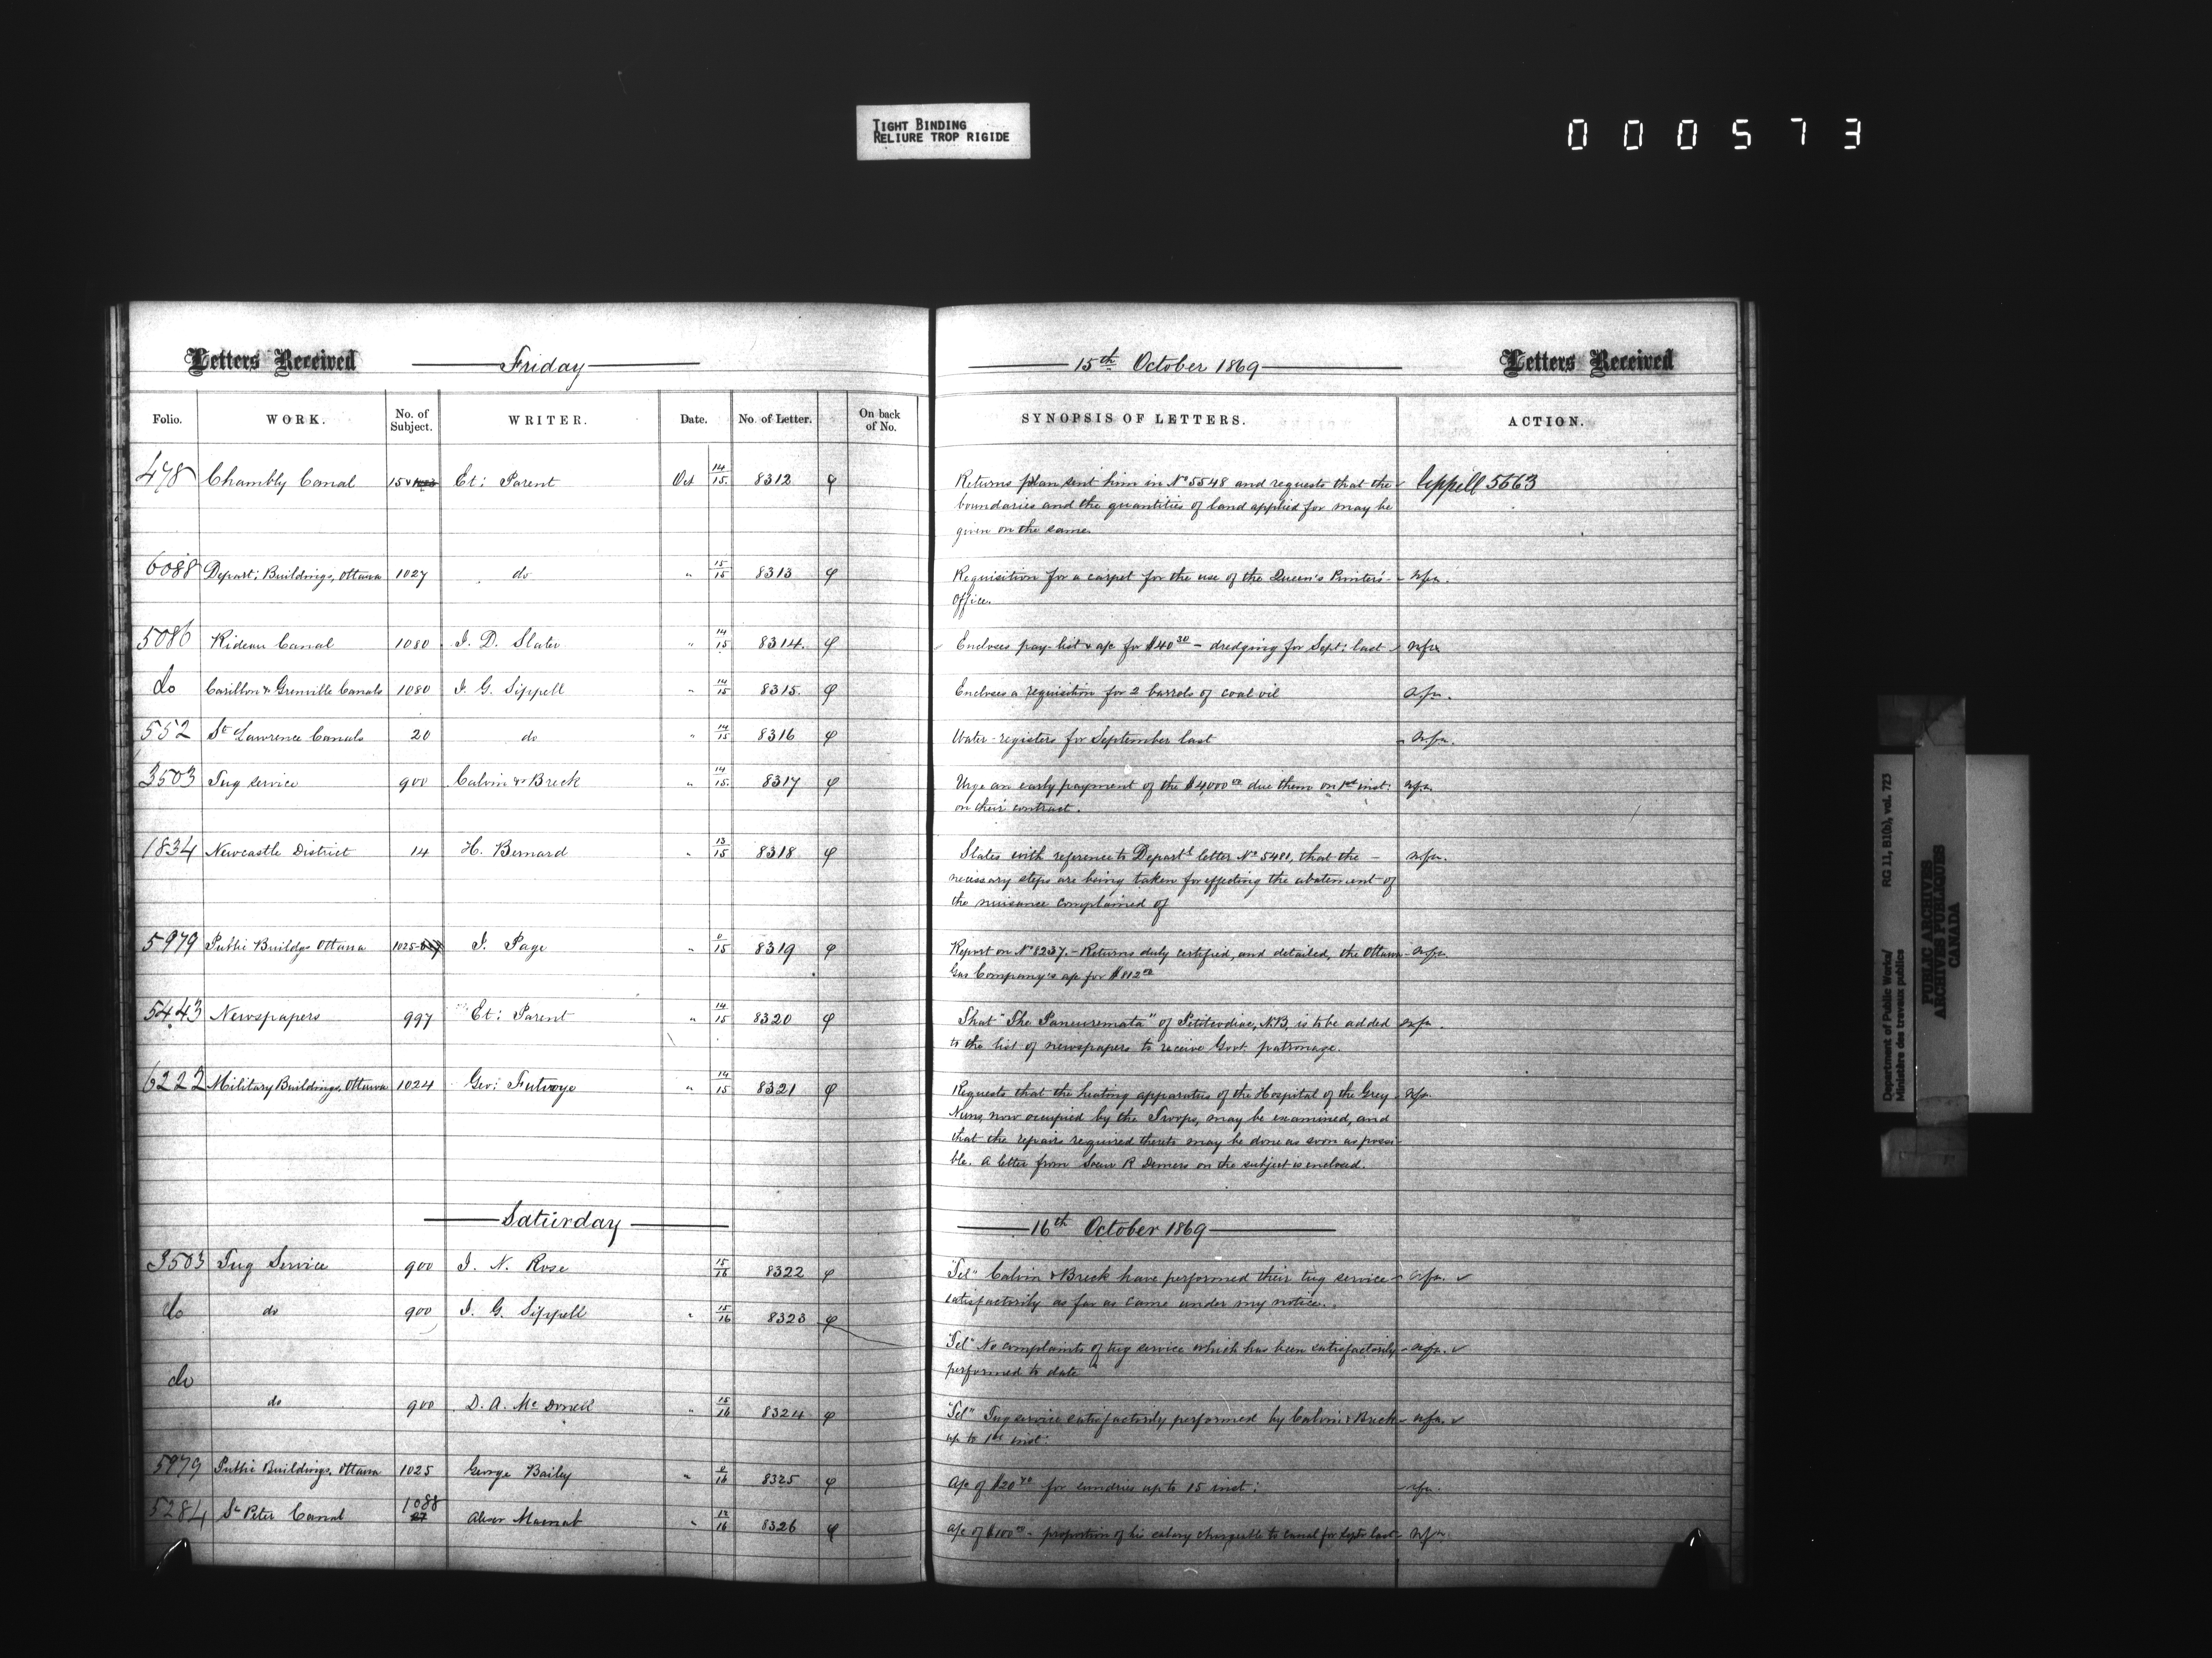 TIGHT BINDING
RELIURE TROP RIGIDE
000573
Letters Received Friday 15th October 1869 Letters Received
Folio. WORK. No. of Subject. WRITER. Date. No. of Letter. On back of No. SYNOPSIS OF LETTERS. ACTION.
478 Chambly Canal 15 Et: Parent Oct 14/15 8312 Returns plan sent him in No 5548 and requests that the Sippell 5663
boundaries and the quantities of land applied for may be
given on the same.
6088 Depart: Buildings, Ottawa 1027 do " 15/15 8313 Requisition for a carpet for the use of the Queen's Printer's - nfa.
Office.
5086 Rideau Canal 1080 J. D. Slater " 14/15 8314. Encloses pay-list & a/c for $40 30 - dredging for Sept: last nfa
do Carillon & Grenville Canals 1080 J. G. Sippell " 14/15 8315. Encloses a requisition for 2 barrels of coal oil nfa.
552 St Lawrence Canals 20 do " 14/15 8316 Water-registers for September last nfa.
3503 Tug service 900 Calvin & Breck " 14/15 8317 Urge an early payment of the $4,000 00 due them on 1st inst: nfa.
on their contract.
1834 Newcastle District 14 H. Bernard " 13/15 8318 States with reference to Depart'l letter No 5481, that the - nfa.
necessary steps are being taken for effecting the abatement of
the nuisance complained of
5979 Public Buildgs Ottawa 1025 J. Page " 0/15 8319 Report on No 8237. - Returns duly certified, and detailed, the Ottawa - nfa.
Gas Company's a/c for $812 00
5443 Newspapers 997 Et: Parent " 14/15 8320 That "The" of Petitcodiac, N.B, is to be added nfa.
to the list of newspapers to receive Govt. patronage.
6222 Military Buildings, Ottawa 1024 Geo: Futvoye " 14/15 8321 Requests that the heating apparatus of the Hospital of the Grey nfa.
Nuns, now occupied by the Troops, may be examined, and
that the repairs required thereto may be done as soon as possi-
ble. A letter from Soeur R Demers on the subject is enclosed.
Saturday 16th October 1869
3503 Tug Service 900 J. N. Rose 15/16 8322 "Tel" Calvin & Breck have performed their tug service nfa. ✓
satisfactorily as far as came under my notice.
do do 900 J. G. Sippell " 15/16 8323
"Tel" No complaints of tug service which has been satisfactorily nfa. ✓
performed to date"
do do 900 D. A. McDonell " 15/16 8324 "Tel" Tug service satisfactorily performed by Calvin & Breck nfa. ✓
up to 1st inst:
5979 Public Buildings, Ottawa 1025 George Bailey " 0/16 8325 a/c of $20 for sundries up to 15 inst: nfa.
5284 St Peter Canal 1088 " 12/16 8326 a/c of $100 00 - proportion of his salary chargeable to canal for Sept: last nfa.
Department of Public Works/ RG 11, B1(b), vol. 723
Ministère des travaux publics
PUBLIC ARCHIVES
ARCHIVES PUBLIQUES
CANADA